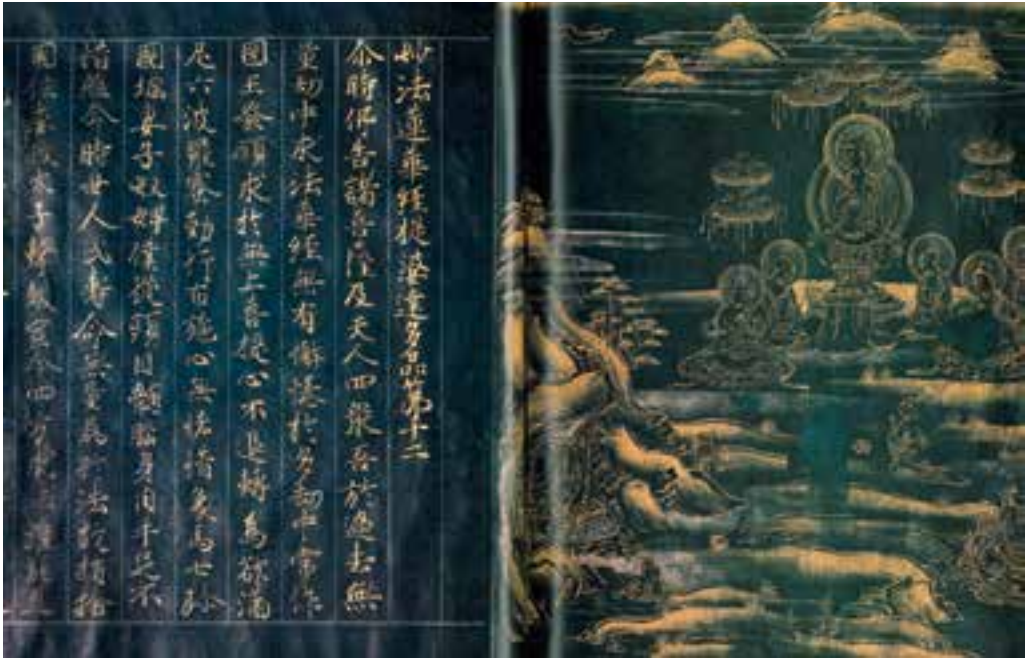 妙法蓮華經提婆達多品第十二
尒時佛告諸菩薩及天人四衆吾於過去無
量劫中求法華經無有懈惓於多劫中常作
國王發願求於無上菩提心不退轉為欲滿
足六波羅蜜勤行布施心無悋惜象馬七珎
國城妻子奴婢僕從頭目髓腦身肉手足不
惜軀命時世人民壽命無量為於法故捐捨
國位委政太子擊鼓宣令四方求法